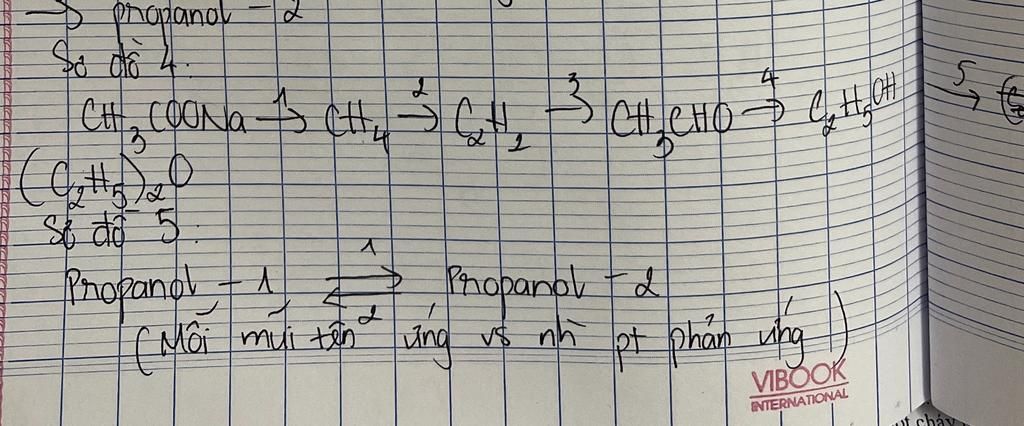 → propanol - 2
Sơ đồ 4:
CH₃COONa →¹ CH₄ →² C₂H₂ →³ CH₃CHO →⁴ C₂H₅OH →⁵
(C₂H₅)₂O
Sơ đồ 5:
Propanol - 1 ⇌ Propanol - 2
1
2
(Mỗi mũi tên ứng vs nh pt phản ứng)
VIBOOK
INTERNATIONAL
cháy